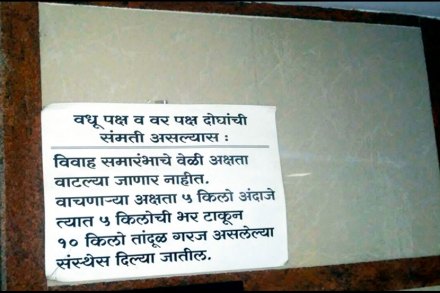 वधू पक्ष व वर पक्ष दोघांची
संमती असल्यास :
विवाह समारंभाचे वेळी अक्षता
वाटल्या जाणार नाहीत.
वाचणाऱ्या अक्षता ५ किलो अंदाजे
त्यात ५ किलोची भर टाकून
१० किलो तांदूळ गरज असलेल्या
संस्थेस दिल्या जातील.